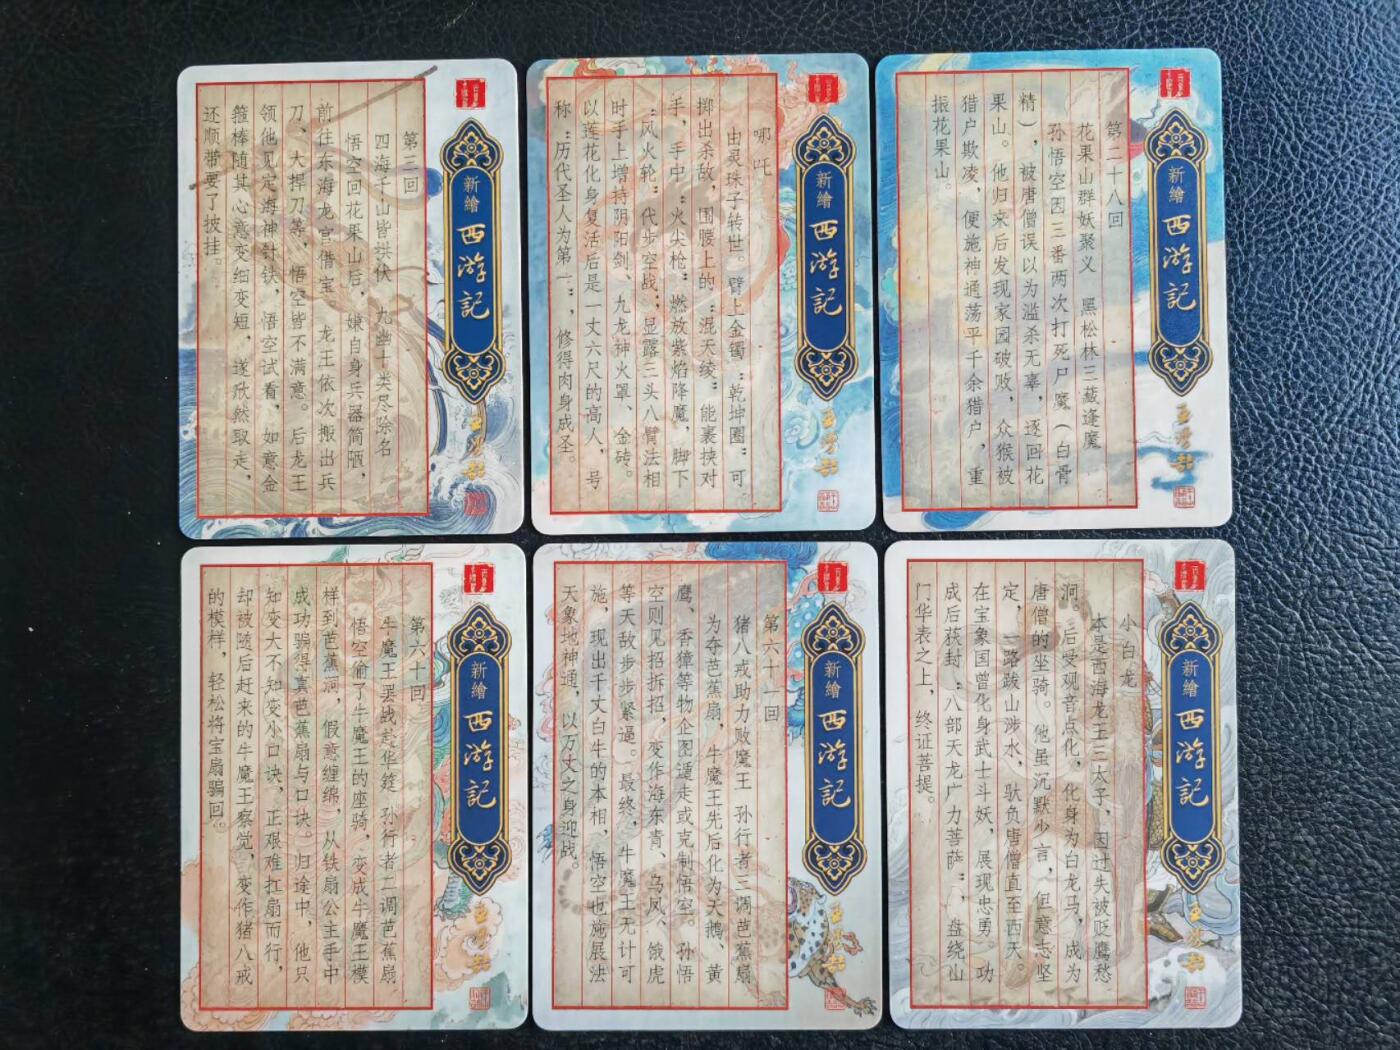 第三回
四海千山皆拱伏 九幽十类尽除名
悟空回花果山后，嫌自身兵器简陋，
前往东海龙宫借宝。龙王依次搬出兵
刀、大捍刀等，悟空皆不满意。后龙王
领他见定海神针铁，悟空试看，如意金
箍棒随其心意变细变短，遂欣然取走，
还顺带要了披挂。
新繪
西游記
哪吒
由灵珠子转世。臂上金镯“乾坤圈”可
掷出杀敌，围腰上的“混天绫”能裹挟对
手，手中“火尖枪”燃放紫焰降魔，脚下
“风火轮”代步空战；显露三头八臂法相
时手上增持阴阳剑、九龙神火罩、金砖。
以莲花化身复活后是一丈六尺的高人，号
称“历代圣人为第一”，修得肉身成圣。
新繪
西游記
第二十八回
花果山群妖聚义 黑松林三藏逢魔
孙悟空因三番两次打死尸魔（白骨
精），被唐僧误以为滥杀无辜，逐回花
果山。他归来后发现家园破败，众猴被
猎户欺凌，便施神通荡平千余猎户，重
振花果山。
新繪
西游記
第六十回
牛魔王罢战赴华筵 孙行者二调芭蕉扇
悟空偷了牛魔王的座骑，变成牛魔王模
样到芭蕉洞，假意缠绵，从铁扇公主手中
成功骗得真芭蕉扇与口诀。归途中，他只
知变大不知变小口诀，正艰难扛扇而行，
却被随后赶来的牛魔王察觉，变作猪八戒
的模样，轻松将宝扇骗回。
新繪
西游記
第六十一回
猪八戒助力败魔王 孙行者三调芭蕉扇
为夺芭蕉扇，牛魔王先后化为天鹅、黄
鹰、香獐等物企图遁走或克制悟空。孙悟
空则见招拆招，变作海东青、乌凤、饿虎
等天敌步步紧逼。最终，牛魔王无计可
施，现出千丈白牛的本相，悟空也施展法
天象地神通，以万丈之身迎战。
新繪
西游記
小白龙
本是西海龙王三太子，因过失被贬鹰愁
洞。后受观音点化，化身为白龙马，成为
唐僧的坐骑。他虽沉默少言，但意志坚
定，一路跋山涉水，驮负唐僧直至西天。
在宝象国曾化身武士斗妖，展现忠勇。功
成后获封“八部天龙广力菩萨”，盘绕山
门华表之上，终证菩提。
新繪
西游記